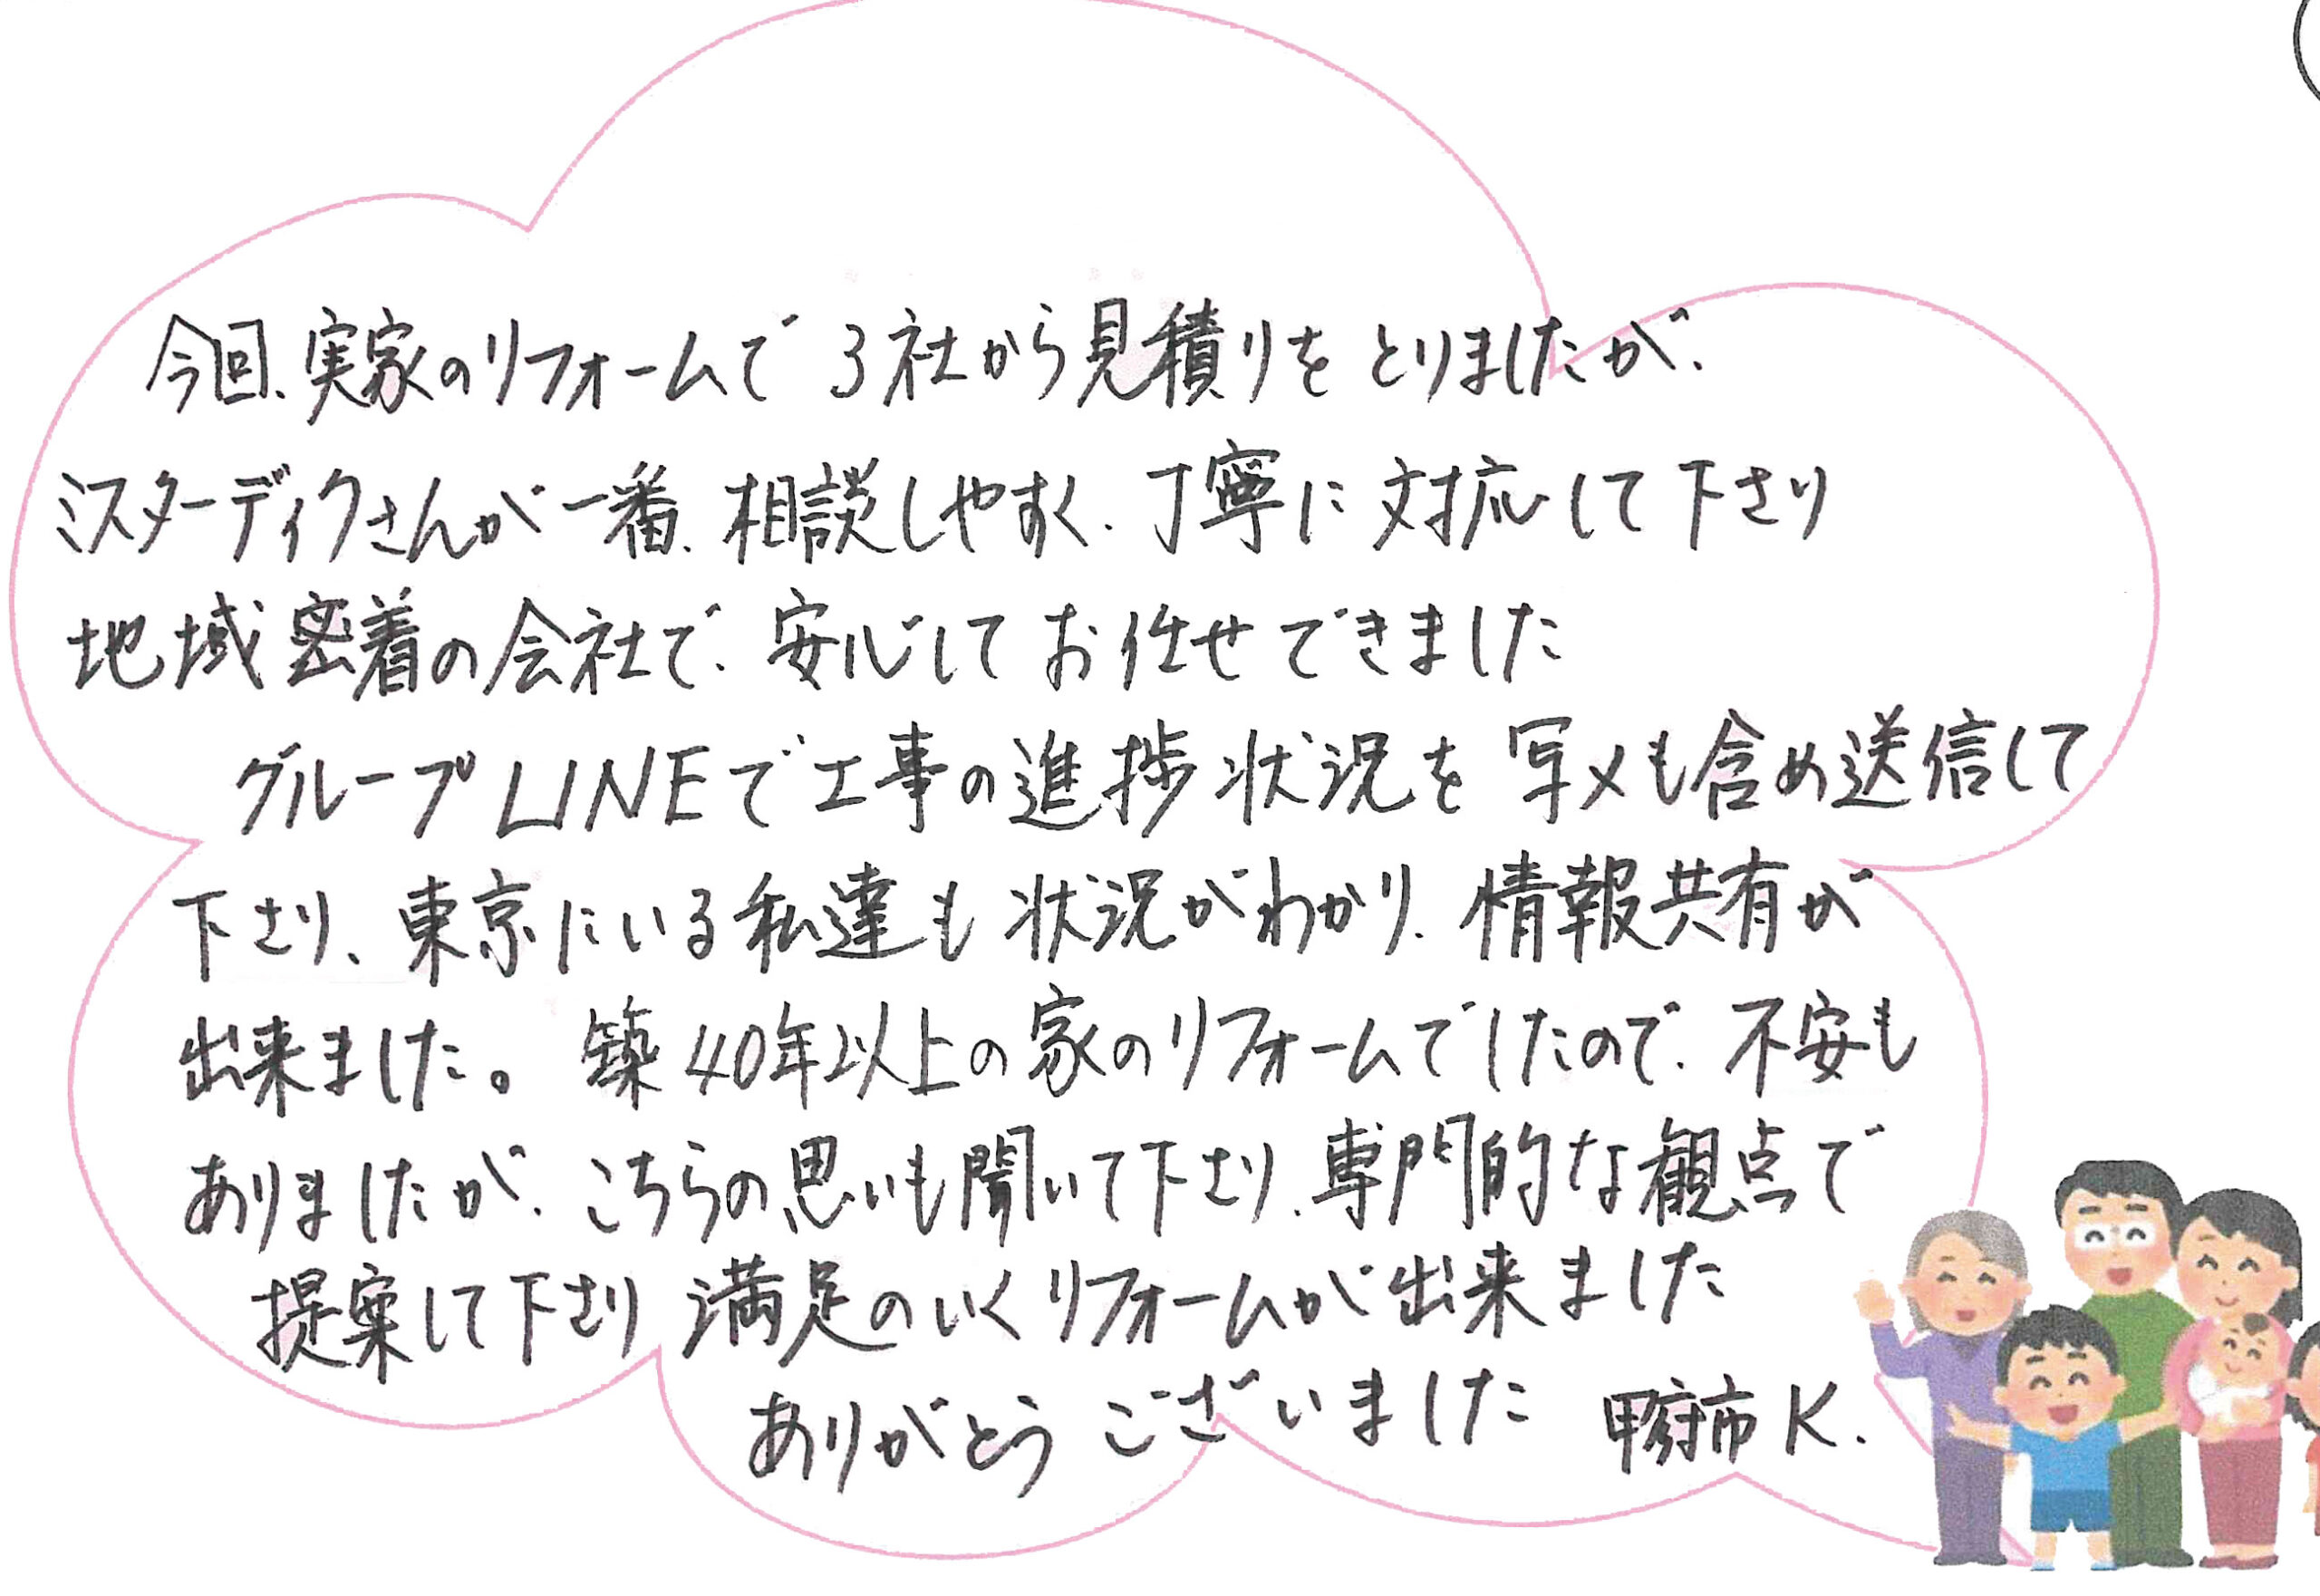 今回、実家のリフォームで3社から見積りをとりましたが、
ミスターディクさんが一番、相談しやすく、丁寧に対応して下さり
地域密着の会社で、安心してお任せできました
グループLINEで工事の進捗状況を写メも含め送信して
下さり、東京にいる私達も状況がわかり、情報共有が
出来ました。築40年以上の家のリフォームでしたので、不安も
ありましたが、こちらの思いも聞いて下さり、専門的な観点で
提案して下さり満足のいくリフォームが出来ました
ありがとうございました 甲府市K.